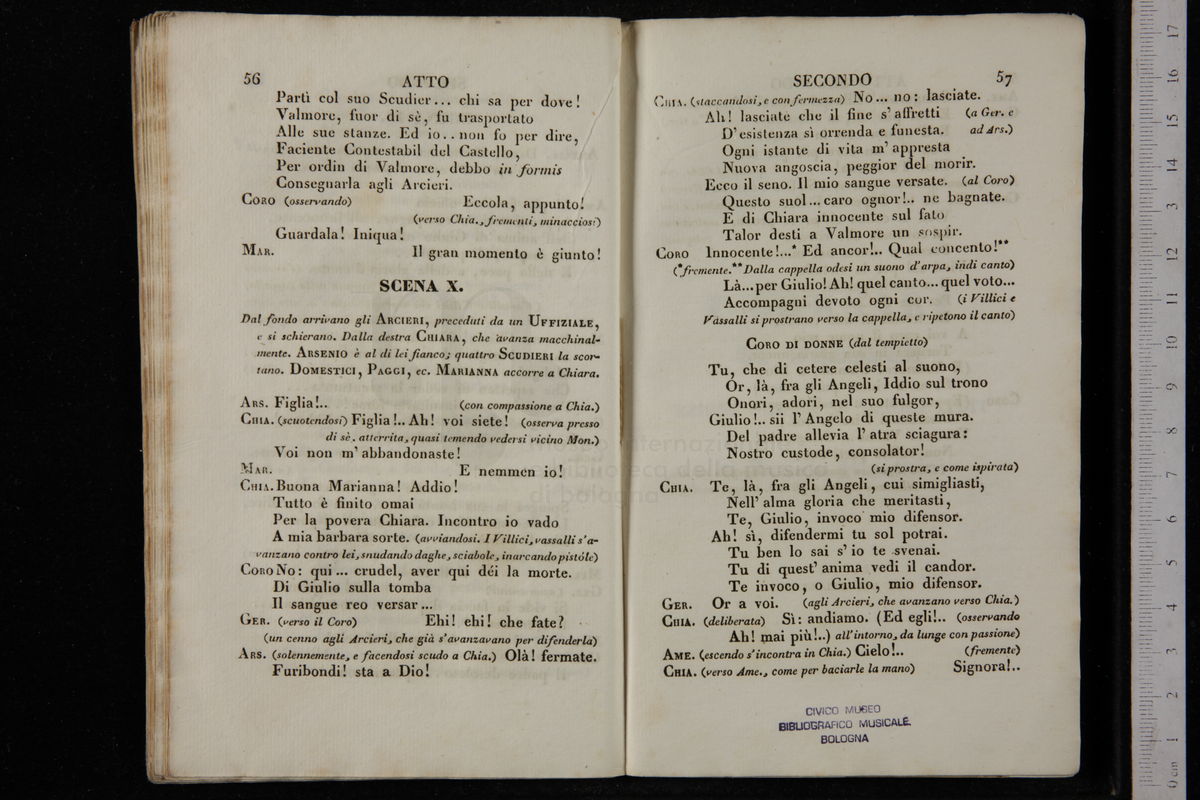 56 ATTO
Partì col suo Scudier... chi sa per dove!
Valmore, fuor di sè, fu trasportato
Alle sue stanze. Ed io.. non fo per dire,
Faciente Contestabil del Castello,
Per ordin di Valmore, debbo in formis
Consegnarla agli Arcieri.
CORO (osservando) Eccola, appunto!
(verso Chia., frementi, minacciosi)
Guardala! Iniqua!
MAR. Il gran momento è giunto!
SCENA X.
Dal fondo arrivano gli ARCIERI, preceduti da un UFFIZIALE,
e si schierano. Dalla destra CHIARA, che avanza macchinal-
mente. ARSENIO è al di lei fianco; quattro SCUDIERI la scor-
tano. DOMESTICI, PAGGI, ec. MARIANNA accorre a Chiara.
ARS. Figlia!.. (con compassione a Chia.)
CHIA. (scuotendosi) Figlia!.. Ah! voi siete! (osserva presso
di sè. atterrita, quasi temendo vedersi vicino Mon.)
Voi non m'abbandonaste!
MAR. E nemmen io!
CHIA. Buona Marianna! Addio!
Tutto è finito omai
Per la povera Chiara. Incontro io vado
A mia barbara sorte. (avviandosi. I Villici, vassalli s'a-
vanzano contro lei, snudando daghe, sciabole, inarcando pistole)
CORO No: qui... crudel, aver qui déi la morte.
Di Giulio sulla tomba
Il sangue reo versar...
GER. (verso il Coro) Ehi! ehi! che fate?
(un cenno agli Arcieri, che già s'avanzavano per difenderla)
ARS. (solennemente, e facendosi scudo a Chia.) Olà! fermate.
Furibondi! sta a Dio!
SECONDO 57
CHIA. (staccandosi, e con fermezza) No... no: lasciate.
Ah! lasciate che il fine s'affretti (a Ger. e
D'esistenza sì orrenda e funesta. ad Ars.)
Ogni istante di vita m'appresta
Nuova angoscia, peggior del morir.
Ecco il seno. Il mio sangue versate. (al Coro)
Questo suol... caro ognor!.. ne bagnate.
E di Chiara innocente sul fato
Talor desti a Valmore un sospir.
CORO Innocente!...* Ed ancor!.. Qual concento!**
(*fremente.**Dalla cappella odesi un suono d'arpa, indi canto)
Là... per Giulio! Ah! quel canto... quel voto...
Accompagni devoto ogni cor. (i Villici e
Vassalli si prostrano verso la cappella, e ripetono il canto)
CORO DI DONNE (dal tempietto)
Tu, che di cetere celesti al suono,
Or, là, fra gli Angeli, Iddio sul trono
Onori, adori, nel suo fulgor,
Giulio!.. sii l'Angelo di queste mura.
Del padre allevia l'atra sciagura:
Nostro custode, consolator!
(si prostra, e come ispirata)
CHIA. Te, là, fra gli Angeli, cui simigliasti,
Nell'alma gloria che meritasti,
Te, Giulio, invoco mio difensor.
Ah! sì, difendermi tu sol potrai.
Tu ben lo sai s'io te svenai.
Tu di quest'anima vedi il candor.
Te invoco, o Giulio, mio difensor.
GER. Or a voi. (agli Arcieri, che avanzano verso Chia.)
CHIA. (deliberata) Sì: andiamo. (Ed egli!.. (osservando
Ah! mai più!..) all'intorno, da lunge con passione)
AME. (escendo s'incontra in Chia.) Cielo!.. (fremente)
CHIA. (verso Ame., come per baciarle la mano) Signora!..
CIVICO MUSEO
BIBLIOGRAFICO MUSICALE
BOLOGNA
museo internazionale
e biblioteca della musica
di bologna
0 cm 1 2 3 4 5 6 7 8 9 10 11 12 13 14 15 16 17